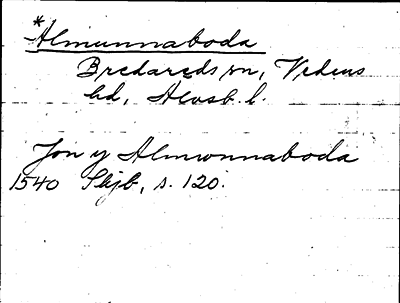 *Almunnaboda
Bredareds sn, Vedens
hd, Älvsb. l.
Jon y Almwnnaboda
1540 Skjb, s. 120.